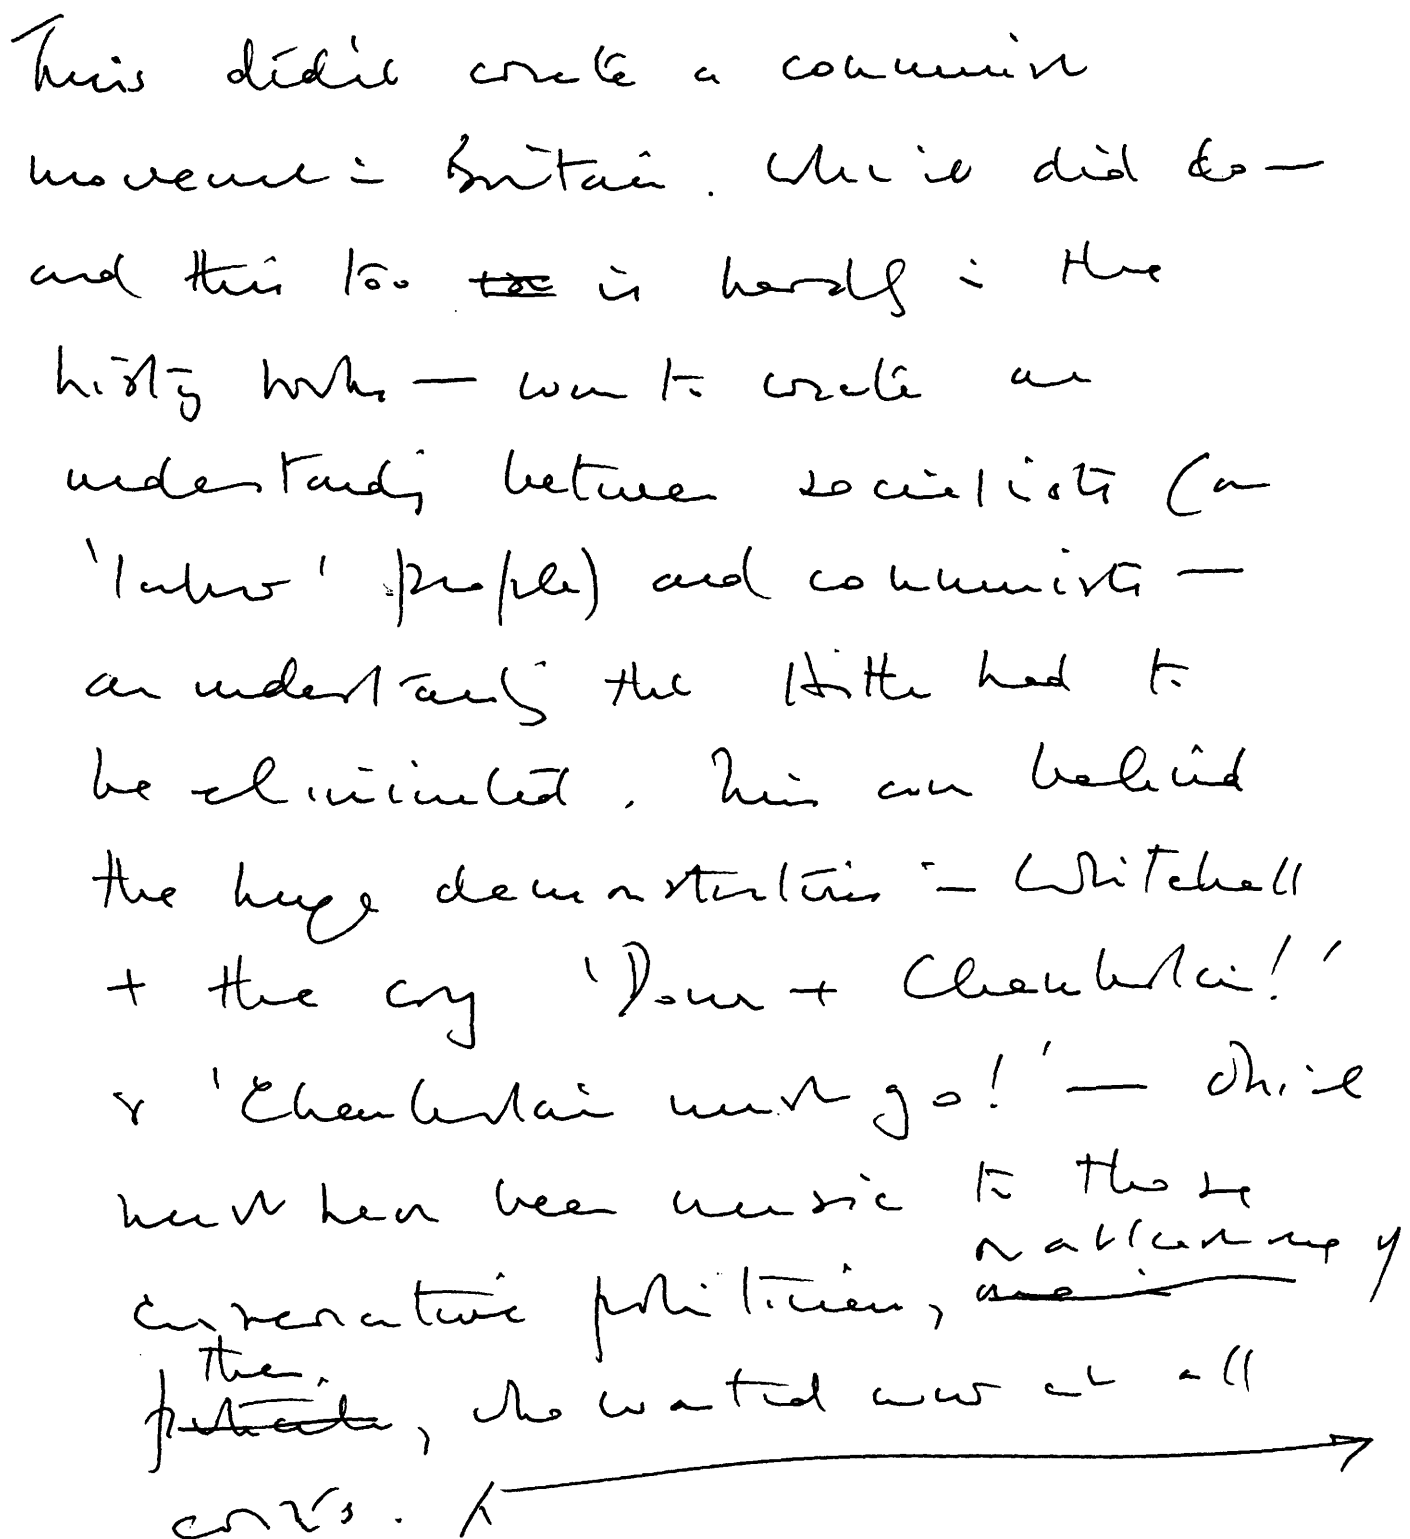 This didn't create a communist
movement in Britain. What it did do —
and this too is hardly in the
history books — was to create an
understanding between socialists (or
'Labour' people) and communists —
an understanding that Hitler had to
be eliminated. This was behind
the huge demonstrations in Whitehall
+ the cry 'Down + Chamberlain!'
& 'Chamberlain must go!' — which
must have been music to those
conservative politicians, not all that many of
them, who wanted war at all
costs.